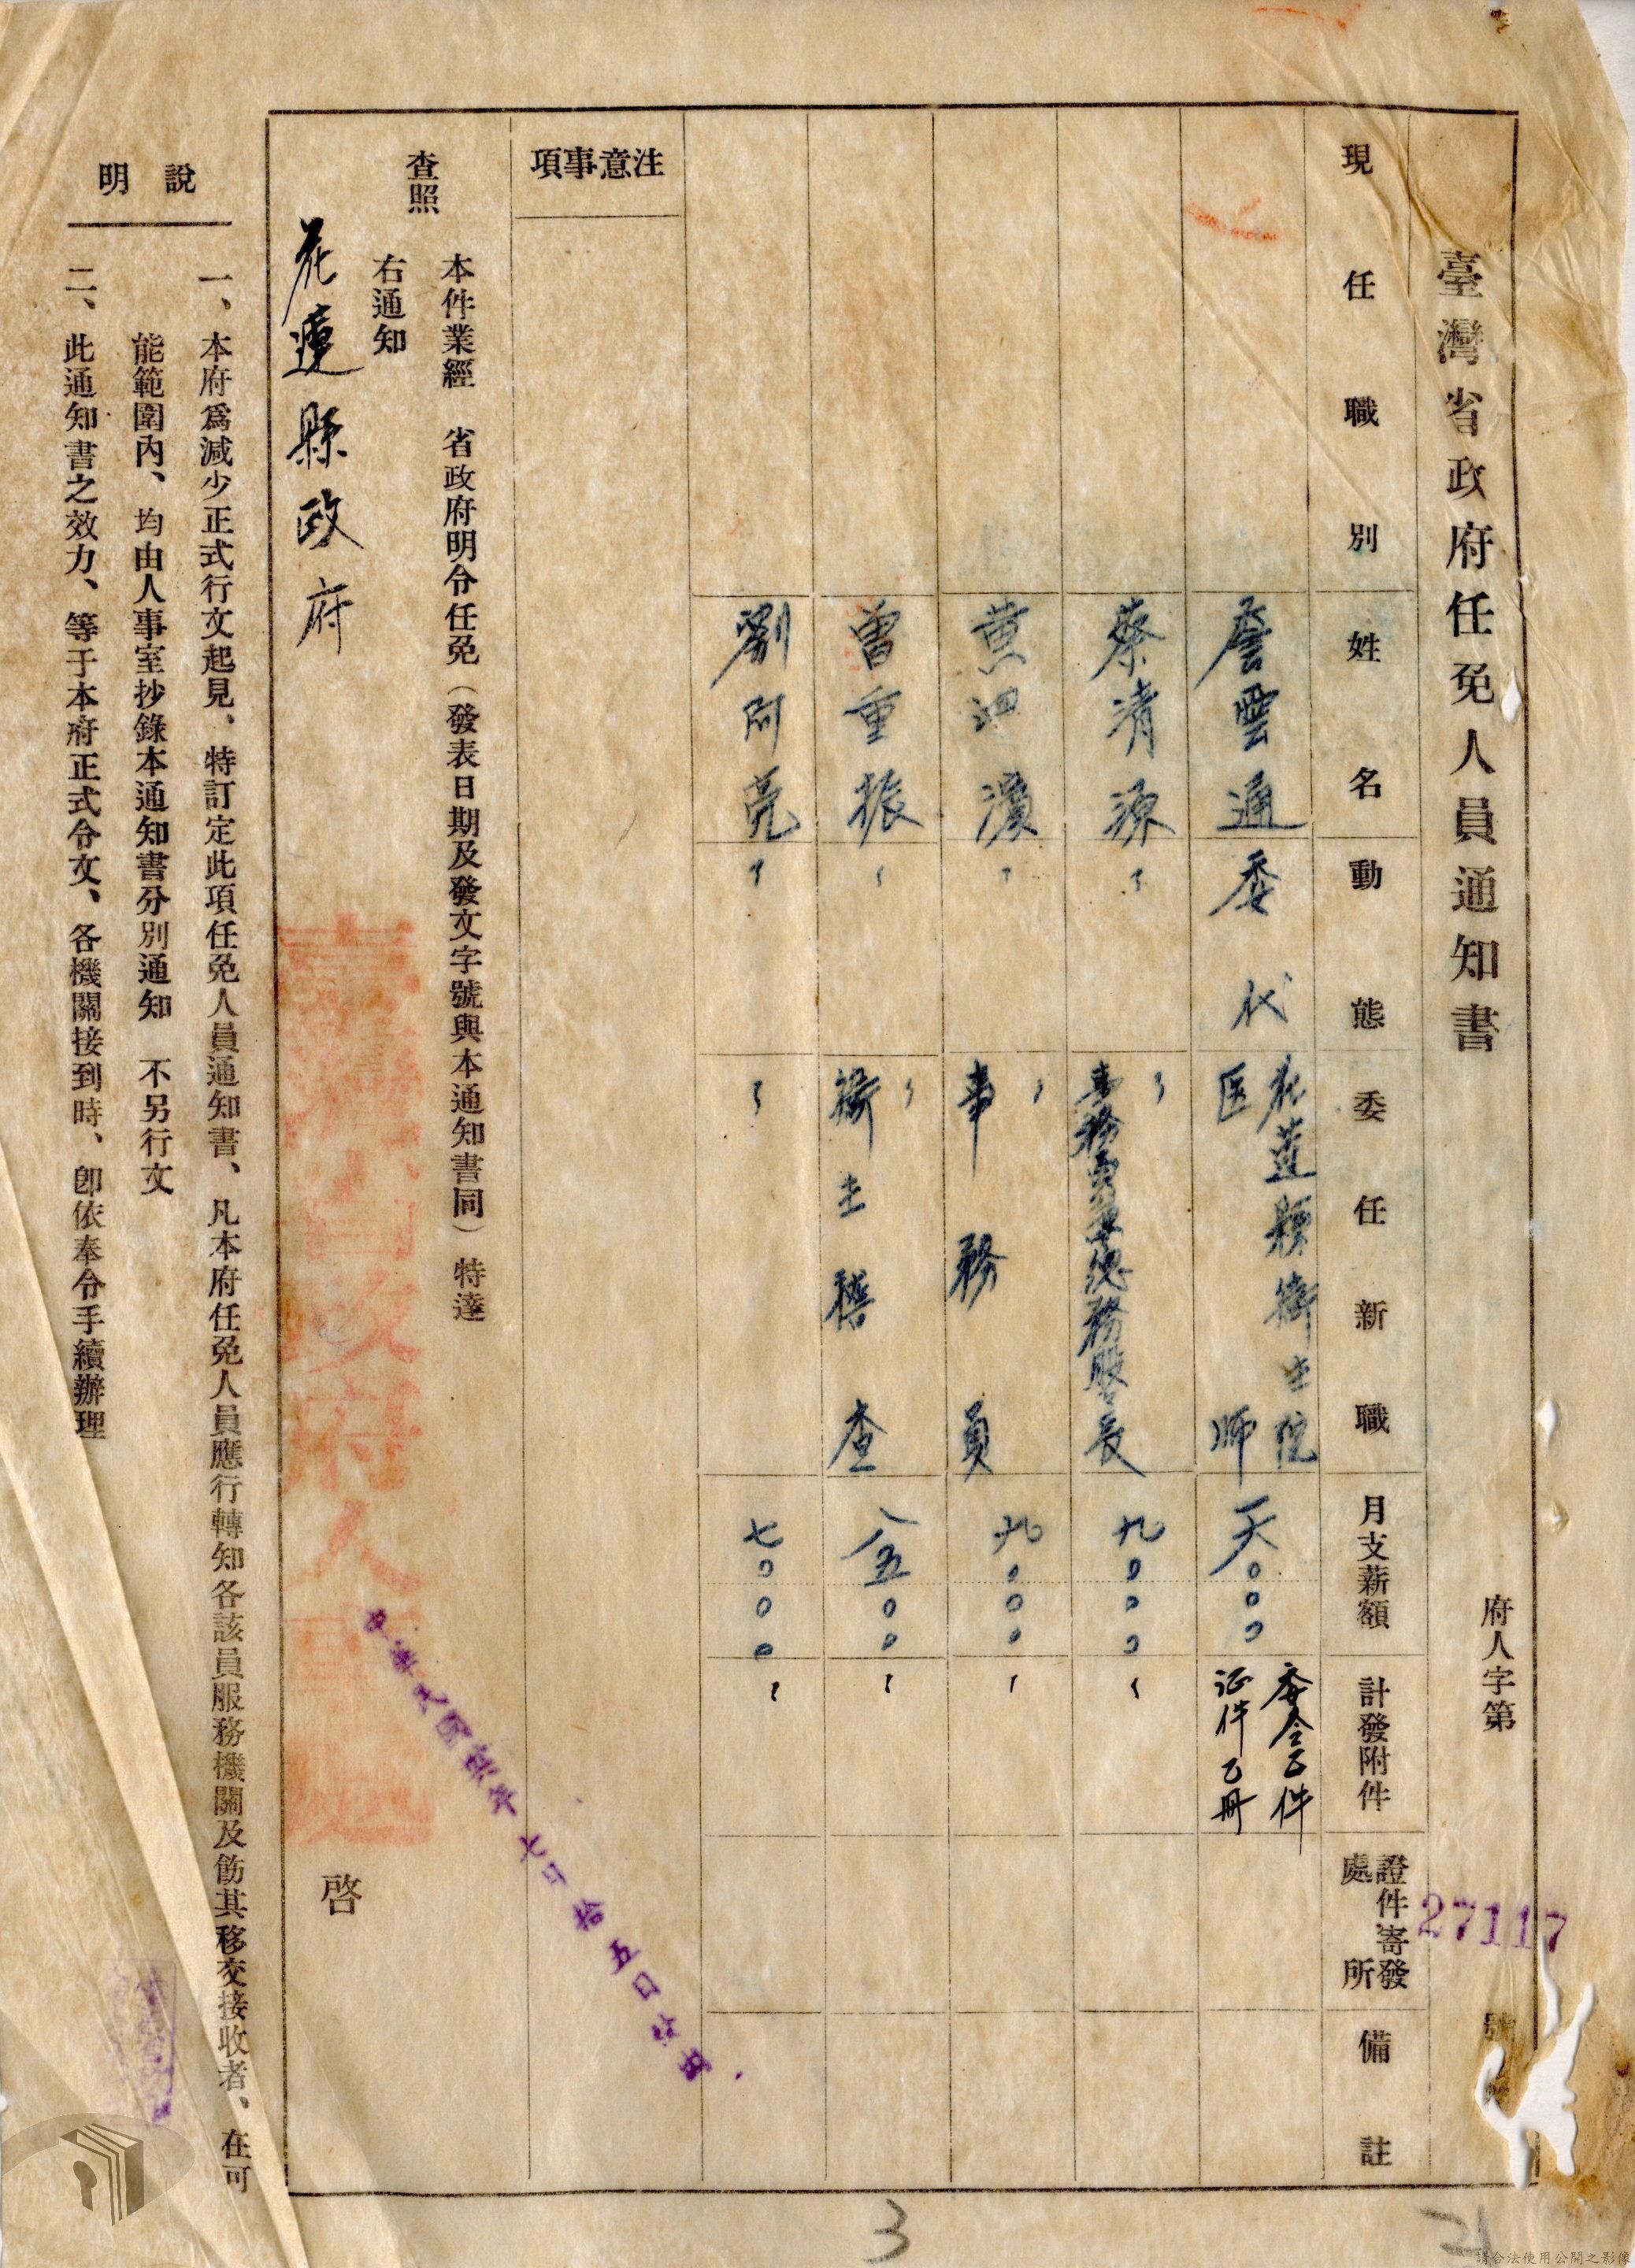 臺灣省政府任免人員通知書
府人字第
27117
號
現任職別
姓名
動態
委任新職
月支薪額
計發附件
證件寄發
處所
備註
詹雲通
委代
花蓮縣衛生院
医師
一六〇〇〇
委令乙件
证件乙冊
蔡清源
〃
〃
事務員兼總務股長
九〇〇〇
〃
黃
濱
〃
〃
事務員
九〇〇〇
〃
曾重振
〃
〃
衛生稽查
八五〇〇
〃
劉阿亮
〃
〃
七〇〇〇
〃
注意事項
本件業經 省政府明令任免(發表日期及發文字號與本通知書同)特達
查照
右通知
花蓮縣政府
臺灣省政府人事處
啓
中華民國
年七月拾五日
說明
一、本府爲減少正式行文起見、特訂定此項任免人員通知書、凡本府任免人員應行轉知各該員服務機關及飭其移交接收者、在可
能範圍內、均由人事室抄錄本通知書分別通知 不另行文
二、此通知書之效力、等于本府正式令文、各機關接到時、卽依奉令手續辦理
3
21
請合法使用公開之影像